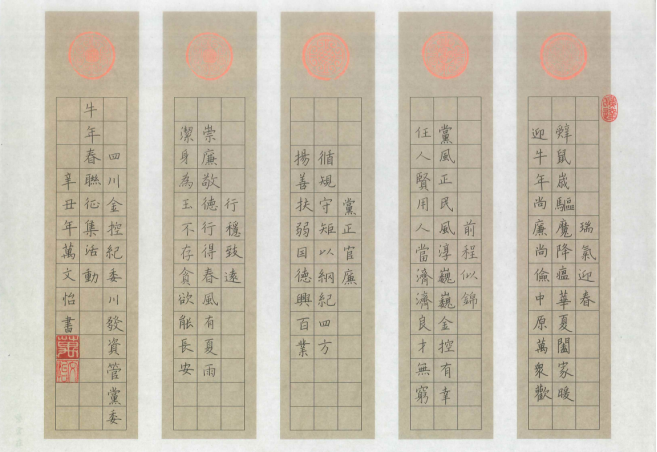 瑞氣迎春
辭鼠歲驅魔降瘟華夏闔家暖
迎牛年尚廉尚儉中原萬衆歡
前程似錦
黨風正民風淳巍巍金控有幸
任人賢用人當濟濟良才無窮
黨正官廉
循規守矩以綱紀四方
揚善扶弱因德興百業
行穩致遠
崇廉敬德行得春風有夏雨
潔身為王不存貪欲能長安
四川金控紀委川發資管黨委
牛年春聯征集活動
辛丑年萬文怡書